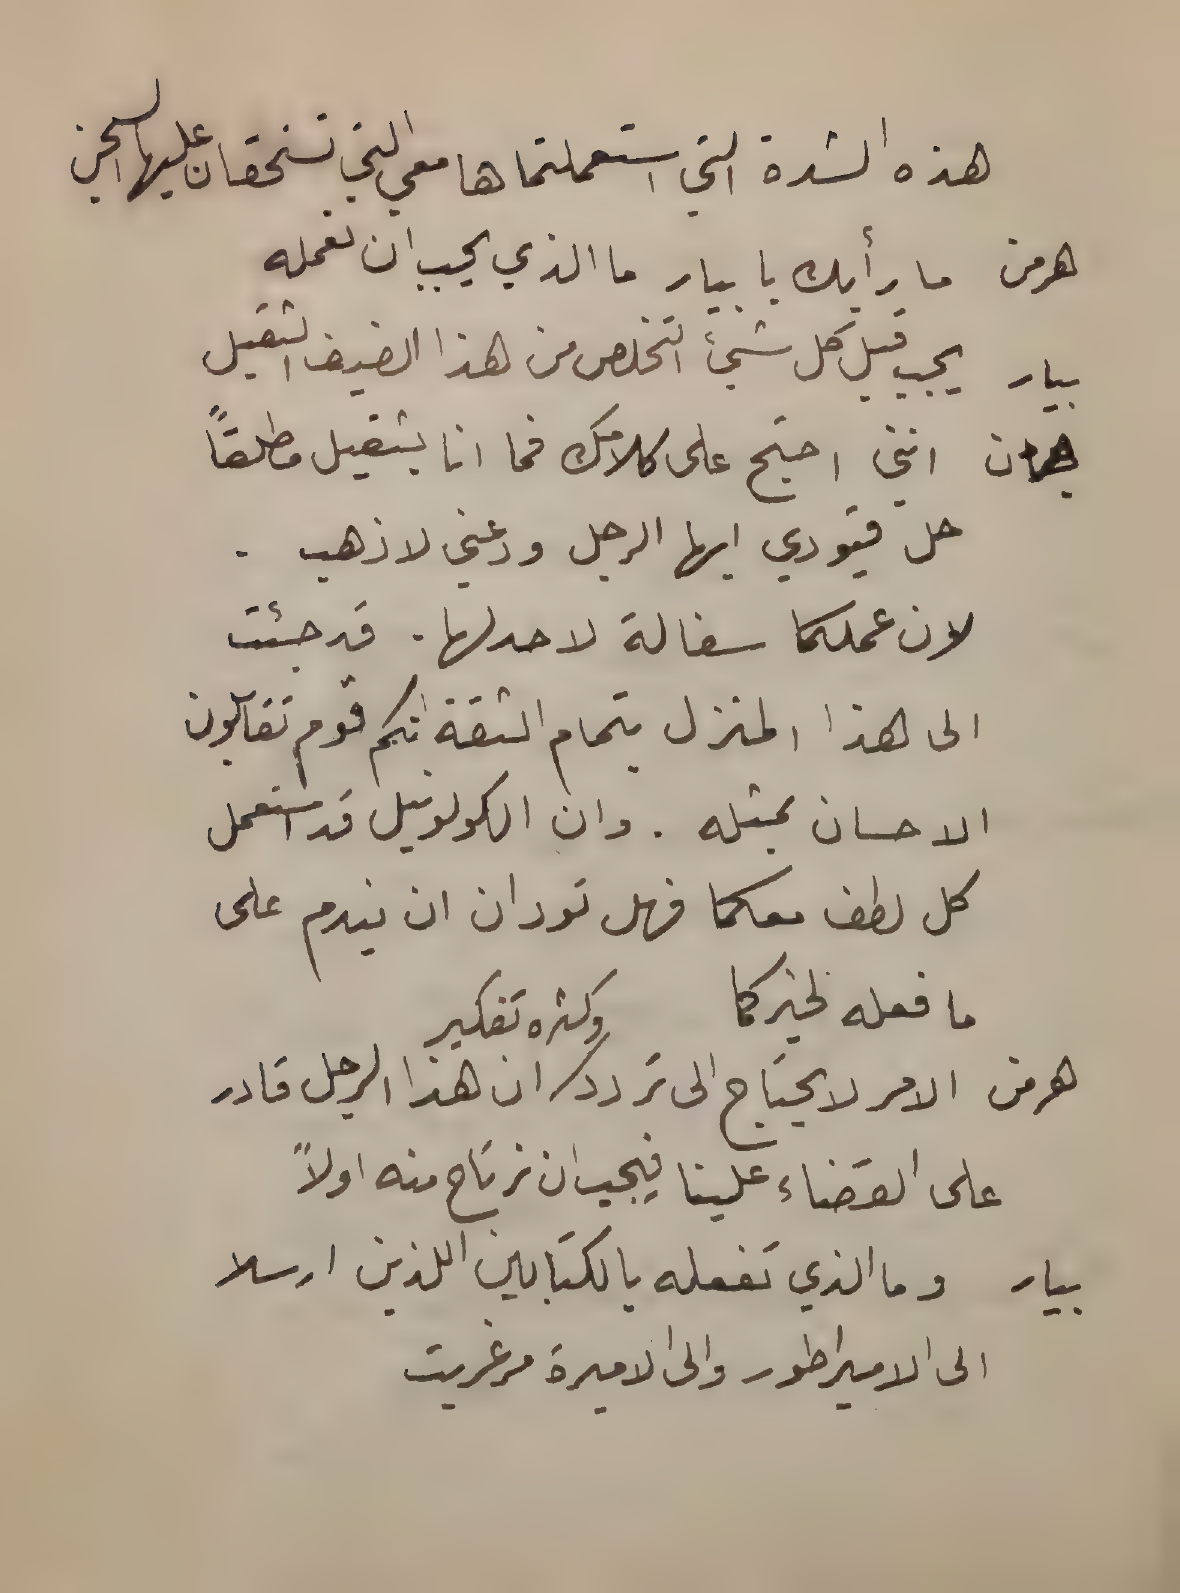 هذه الشدة التي استعملتماها معي التي تستحقان عليها السجن
هرمن ما رأيك يا بيار ما الذي يجب ان نعمله
بيار يجب قبل كل شيئ التخلص من هذا الضيف الثقيل
جان انني احتج على كلامك فما انا بثقيل مطلقاً
حل قيودي ايها الرجل ودعني لاذهب .
لان عملكما سفالة لا حد لها . قد جئت
الى هذا المنزل بتمام الثقة انكم قوم تقابلون
الاحسان بمثله . وان الكولونيل قد استعمل
كل لطف معكما فهل تودان ان يندم على
ما فعله لخيركما
وكثره تفكير
هرمن الامر لا يحتاج الى تردد / ان هذا الرجل قادر
على القضاء علينا فيجب ان نرتاح منه اولاً
بيار وما الذي تفعله بالكتابين اللذين ارسلا
الى الامبراطور والى الاميرة مرغريت